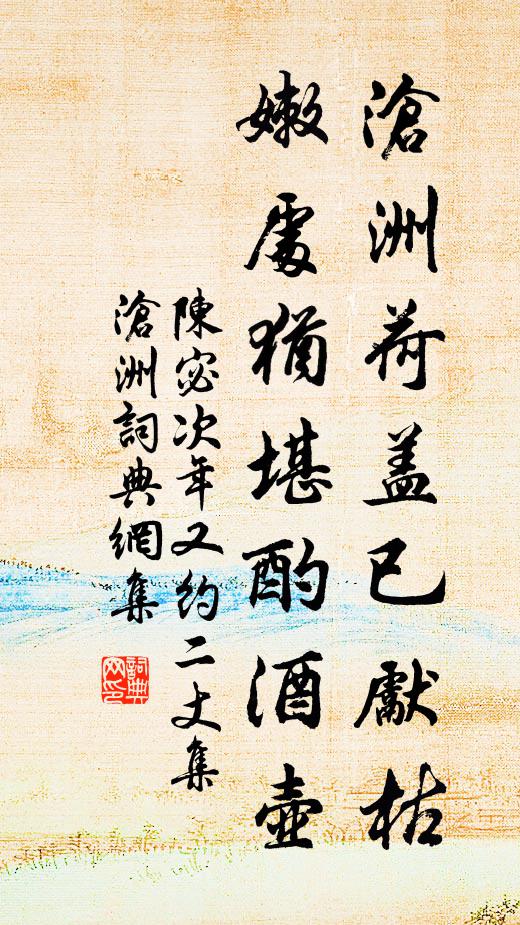 滄洲荷盖已獻枯
嫰處猶堪酌酒壺
陳宓次年又約二丈集
滄洲詞典網集
詞典网印